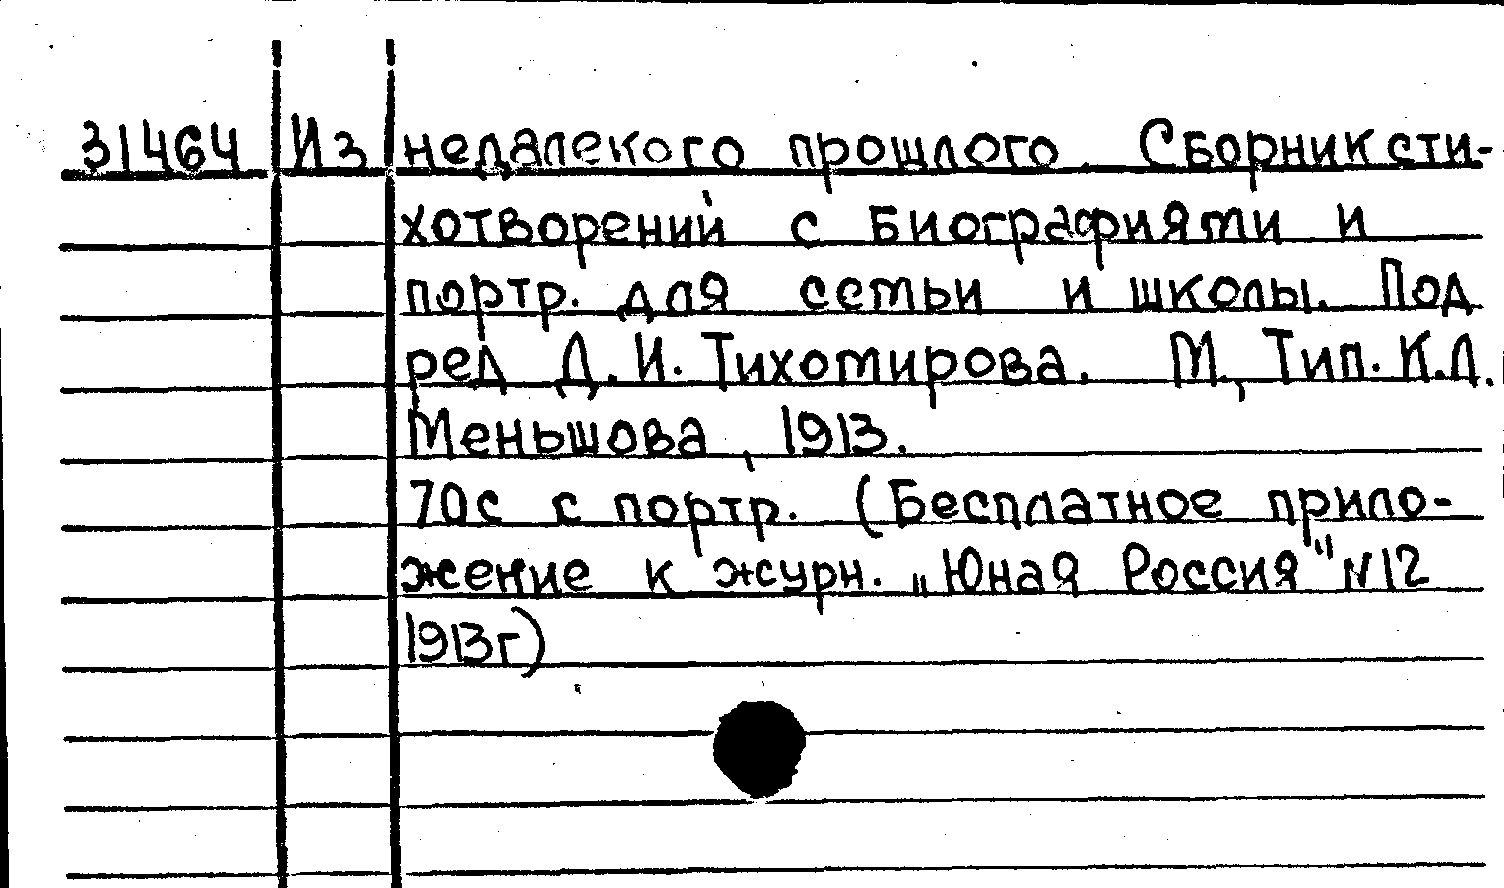 31464 Из недалекого прошлого. Сборник сти-
хотворений с биографиями и
портр. для семьи и школы. Под
ред Д. И. Тихомирова. М, Тип. К.Л.
Меньшова, 1913.
70с с портр. (Бесплатное прило-
жение к журн. „Юная Россия" N12
1913г)